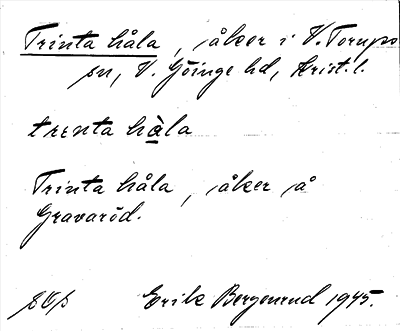 Trinta håla, åker i V. Torups
sn, V. Göinge hd, Krist. l.
trenta håla
Trinta håla, åker å
Gravaröd.
Erik Bergenrud 1945.